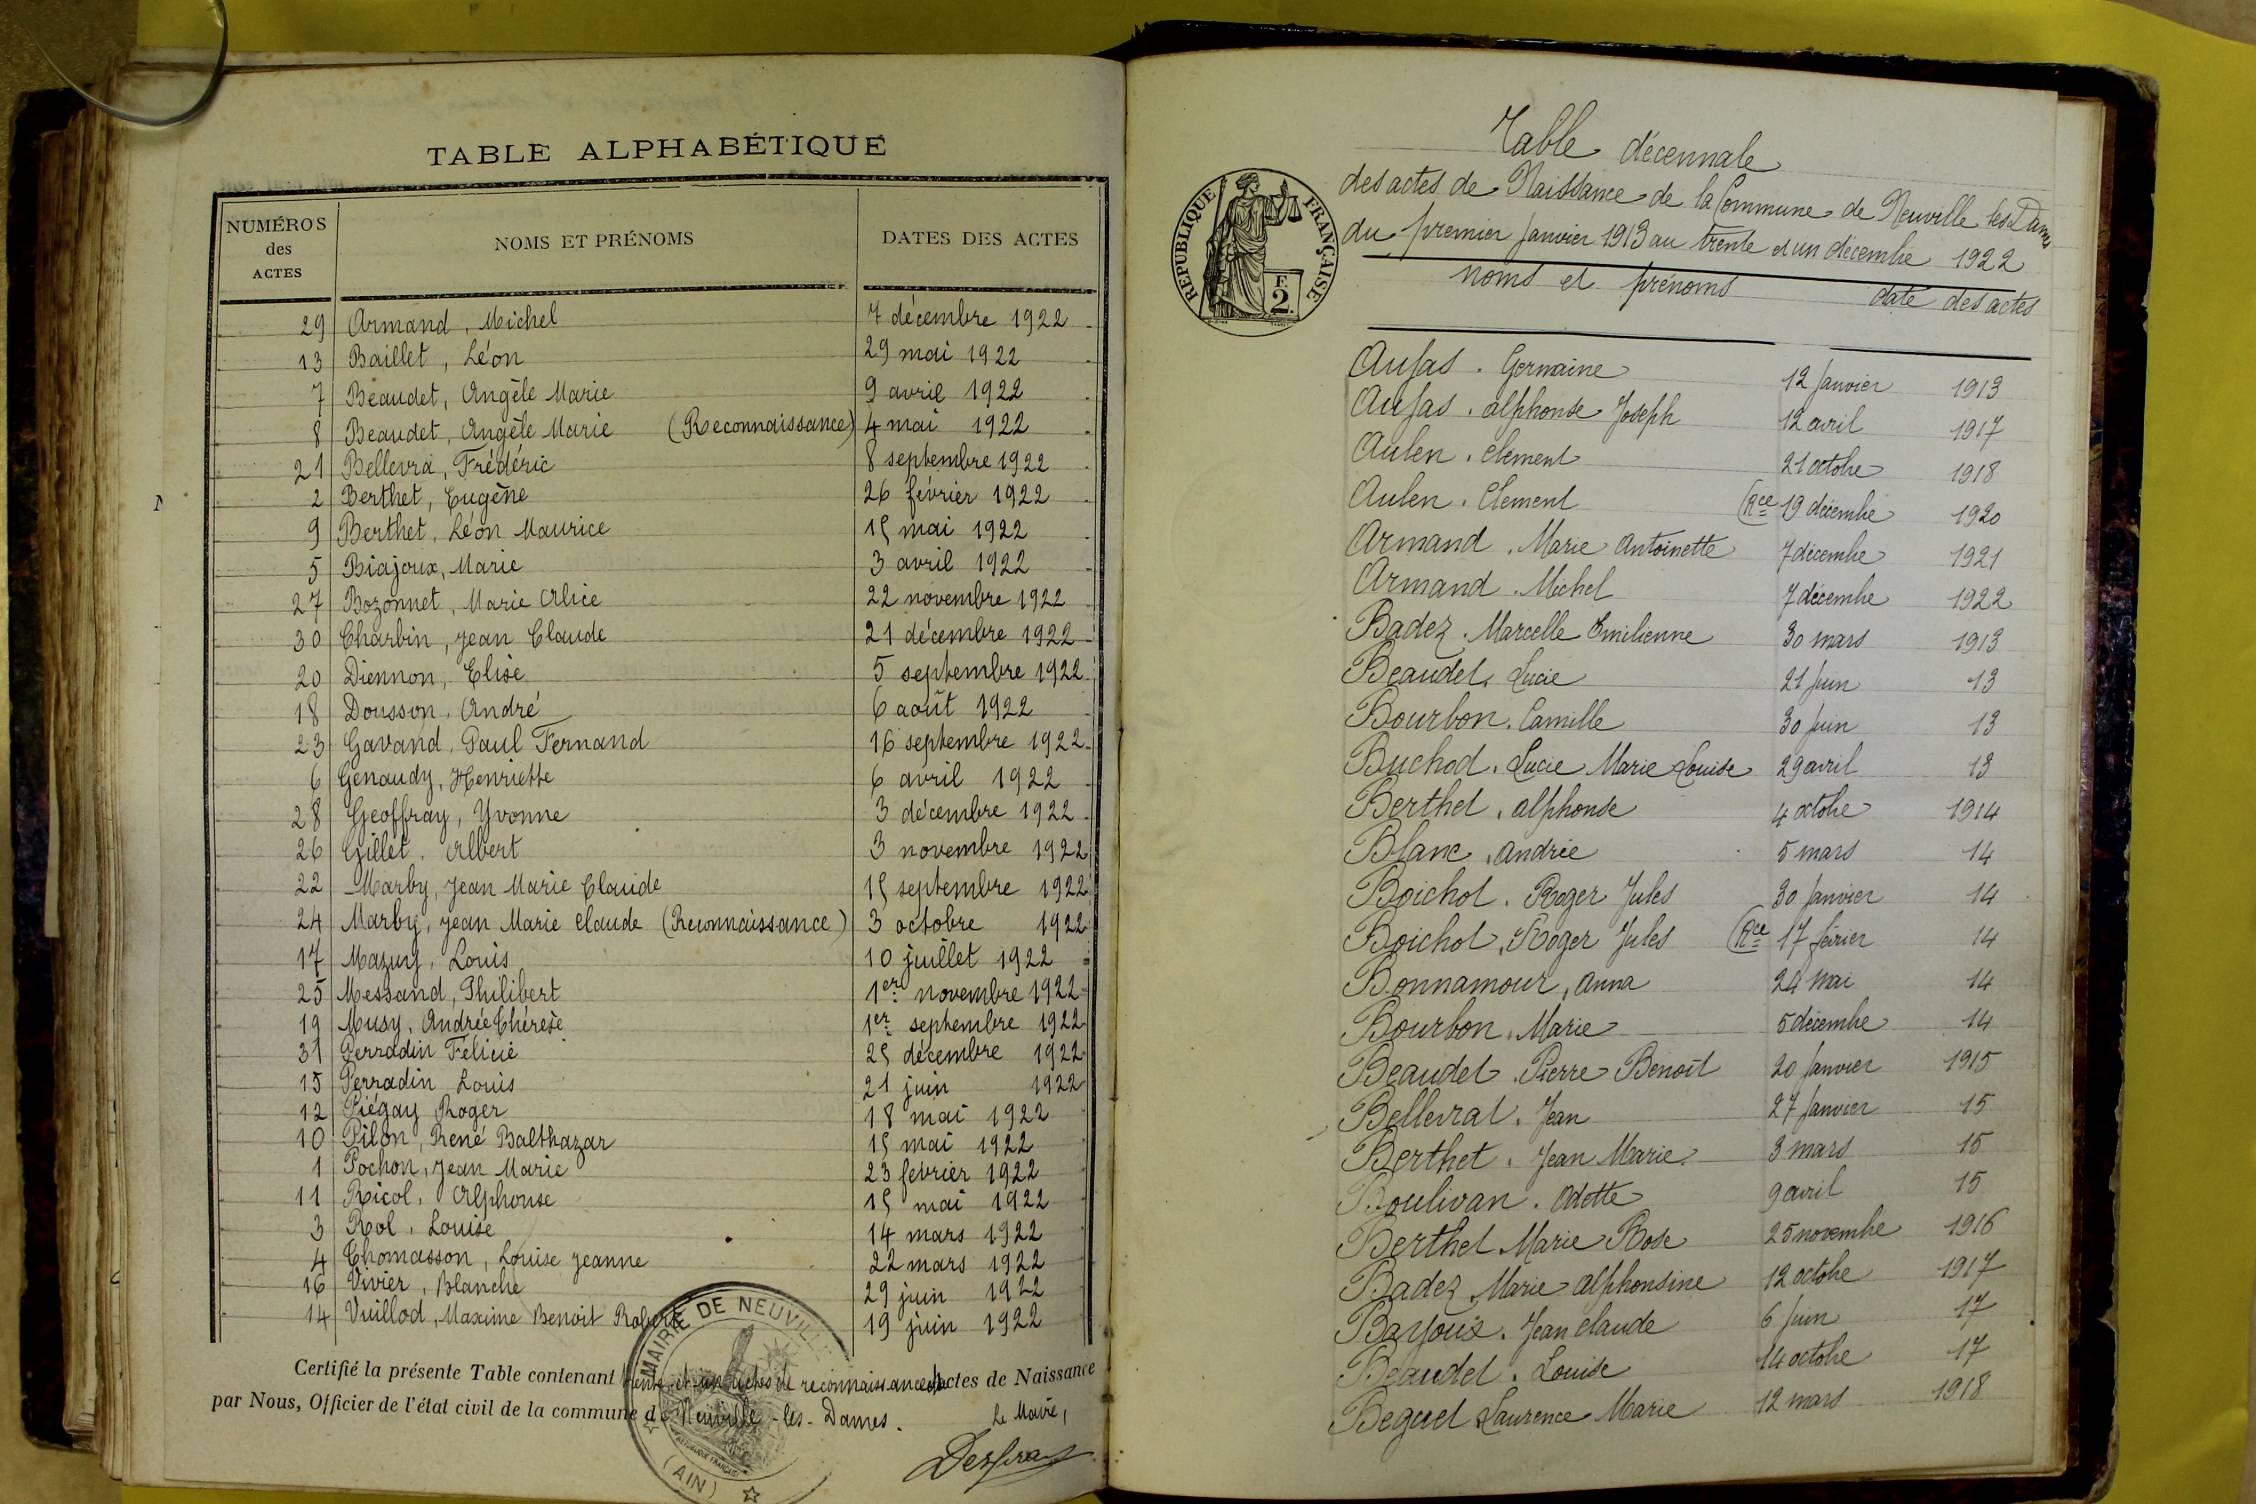 TABLE ALPHABÉTIQUE
NUMÉROS des ACTES NOMS ET PRÉNOMS DATES DES ACTES
29 Armand, Michel 7 décembre 1922
13 Baillet, Léon 29 mai 1922
7 Beaudet, Angèle Marie 9 avril 1922
8 Beaudet, Angèle Marie (Reconnaissance) 4 mai 1922
21 Bellevra, Frédéric 8 septembre 1922
2 Berthet, Eugène 26 février 1922
9 Berthet, Léon Maurice 15 mai 1922
5 Biajoux, Marie 3 avril 1922
27 Bozonnet, Marie Alice 22 novembre 1922
30 Charbin, Jean Claude 21 décembre 1922
20 Diennon, Elise 5 septembre 1922
18 Dousson, André 6 août 1922
23 Gavand, Paul Fernand 16 septembre 1922
6 Genaudy, Henriette 6 avril 1922
28 Geoffray, Yvonne 3 décembre 1922
26 Gillet, Albert 3 novembre 1922
22 Marby, Jean Marie Claude 15 septembre 1922
24 Marby, Jean Marie Claude (Reconnaissance) 3 octobre 1922
17 Mazuy, Louis 10 juillet 1922
25 Messand, Philibert 1er novembre 1922
19 Musy, Andrée Thérèse 1er septembre 1922
31 Perradin Félicie 25 décembre 1922
15 Perradin Louis 21 juin 1922
12 Piégay Roger 18 mai 1922
10 Pilon, René Balthazar 15 mai 1922
1 Pochon, Jean Marie 23 février 1922
11 Ricol, Alphonse 15 mai 1922
3 Rol, Louise 14 mars 1922
4 Thomasson, Louise Jeanne 22 mars 1922
16 Vivier, Blanche 29 juin 1922
14 Vuillod, Maxime Benoit Robert 19 juin 1922
Certifié la présente Table contenant trente et un actes de reconnaissance et actes de Naissance
par Nous, Officier de l'état civil de la commune de Neuville-les-Dames.
Le Maire,
MAIRIE DE NEUVILLE
(AIN)
RÉPUBLIQUE FRANÇAISE
E 2.
Table décennale
des actes de Naissance de la Commune de Neuville les Dames
du premier Janvier 1913 au trente et un décembre 1922
noms et prénoms date des actes
Aujas. Germaine 12 Janvier 1913
Aujas. Alphonse Joseph 12 avril 1917
Aulen. Clement 21 octobre 1918
Aulen. Clement (Rce 19 décembre 1920
Armand. Marie Antoinette 7 décembre 1921
Armand. Michel 7 décembre 1922
Badez. Marcelle Emilienne 30 mars 1913
Beaudet. Lucie 21 Juin 13
Bourbon. Camille 30 Juin 13
Buchod. Lucie Marie Louise 29 avril 13
Berthet. Alphonse 4 octobre 1914
Blanc. Andrée 5 mars 14
Boichot. Roger Jules 30 Janvier 14
Boichot. Roger Jules (Rce 17 février 14
Bonnamour, Anna 24 mai 14
Bourbon. Marie 5 décembre 14
Beaudet. Pierre Benoît 20 Janvier 1915
Bellevrat. Jean 27 Janvier 15
Berthet. Jean Marie 3 mars 15
Boulivan. Odette 9 avril 15
Berthet Marie Rose 25 novembre 1916
Badez. Marie Alphonsine 12 octobre 1917
Bajoux. Jean Claude 6 Juin 17
Beaudet. Louise 14 octobre 17
Beguet Laurence Marie 12 mars 1918